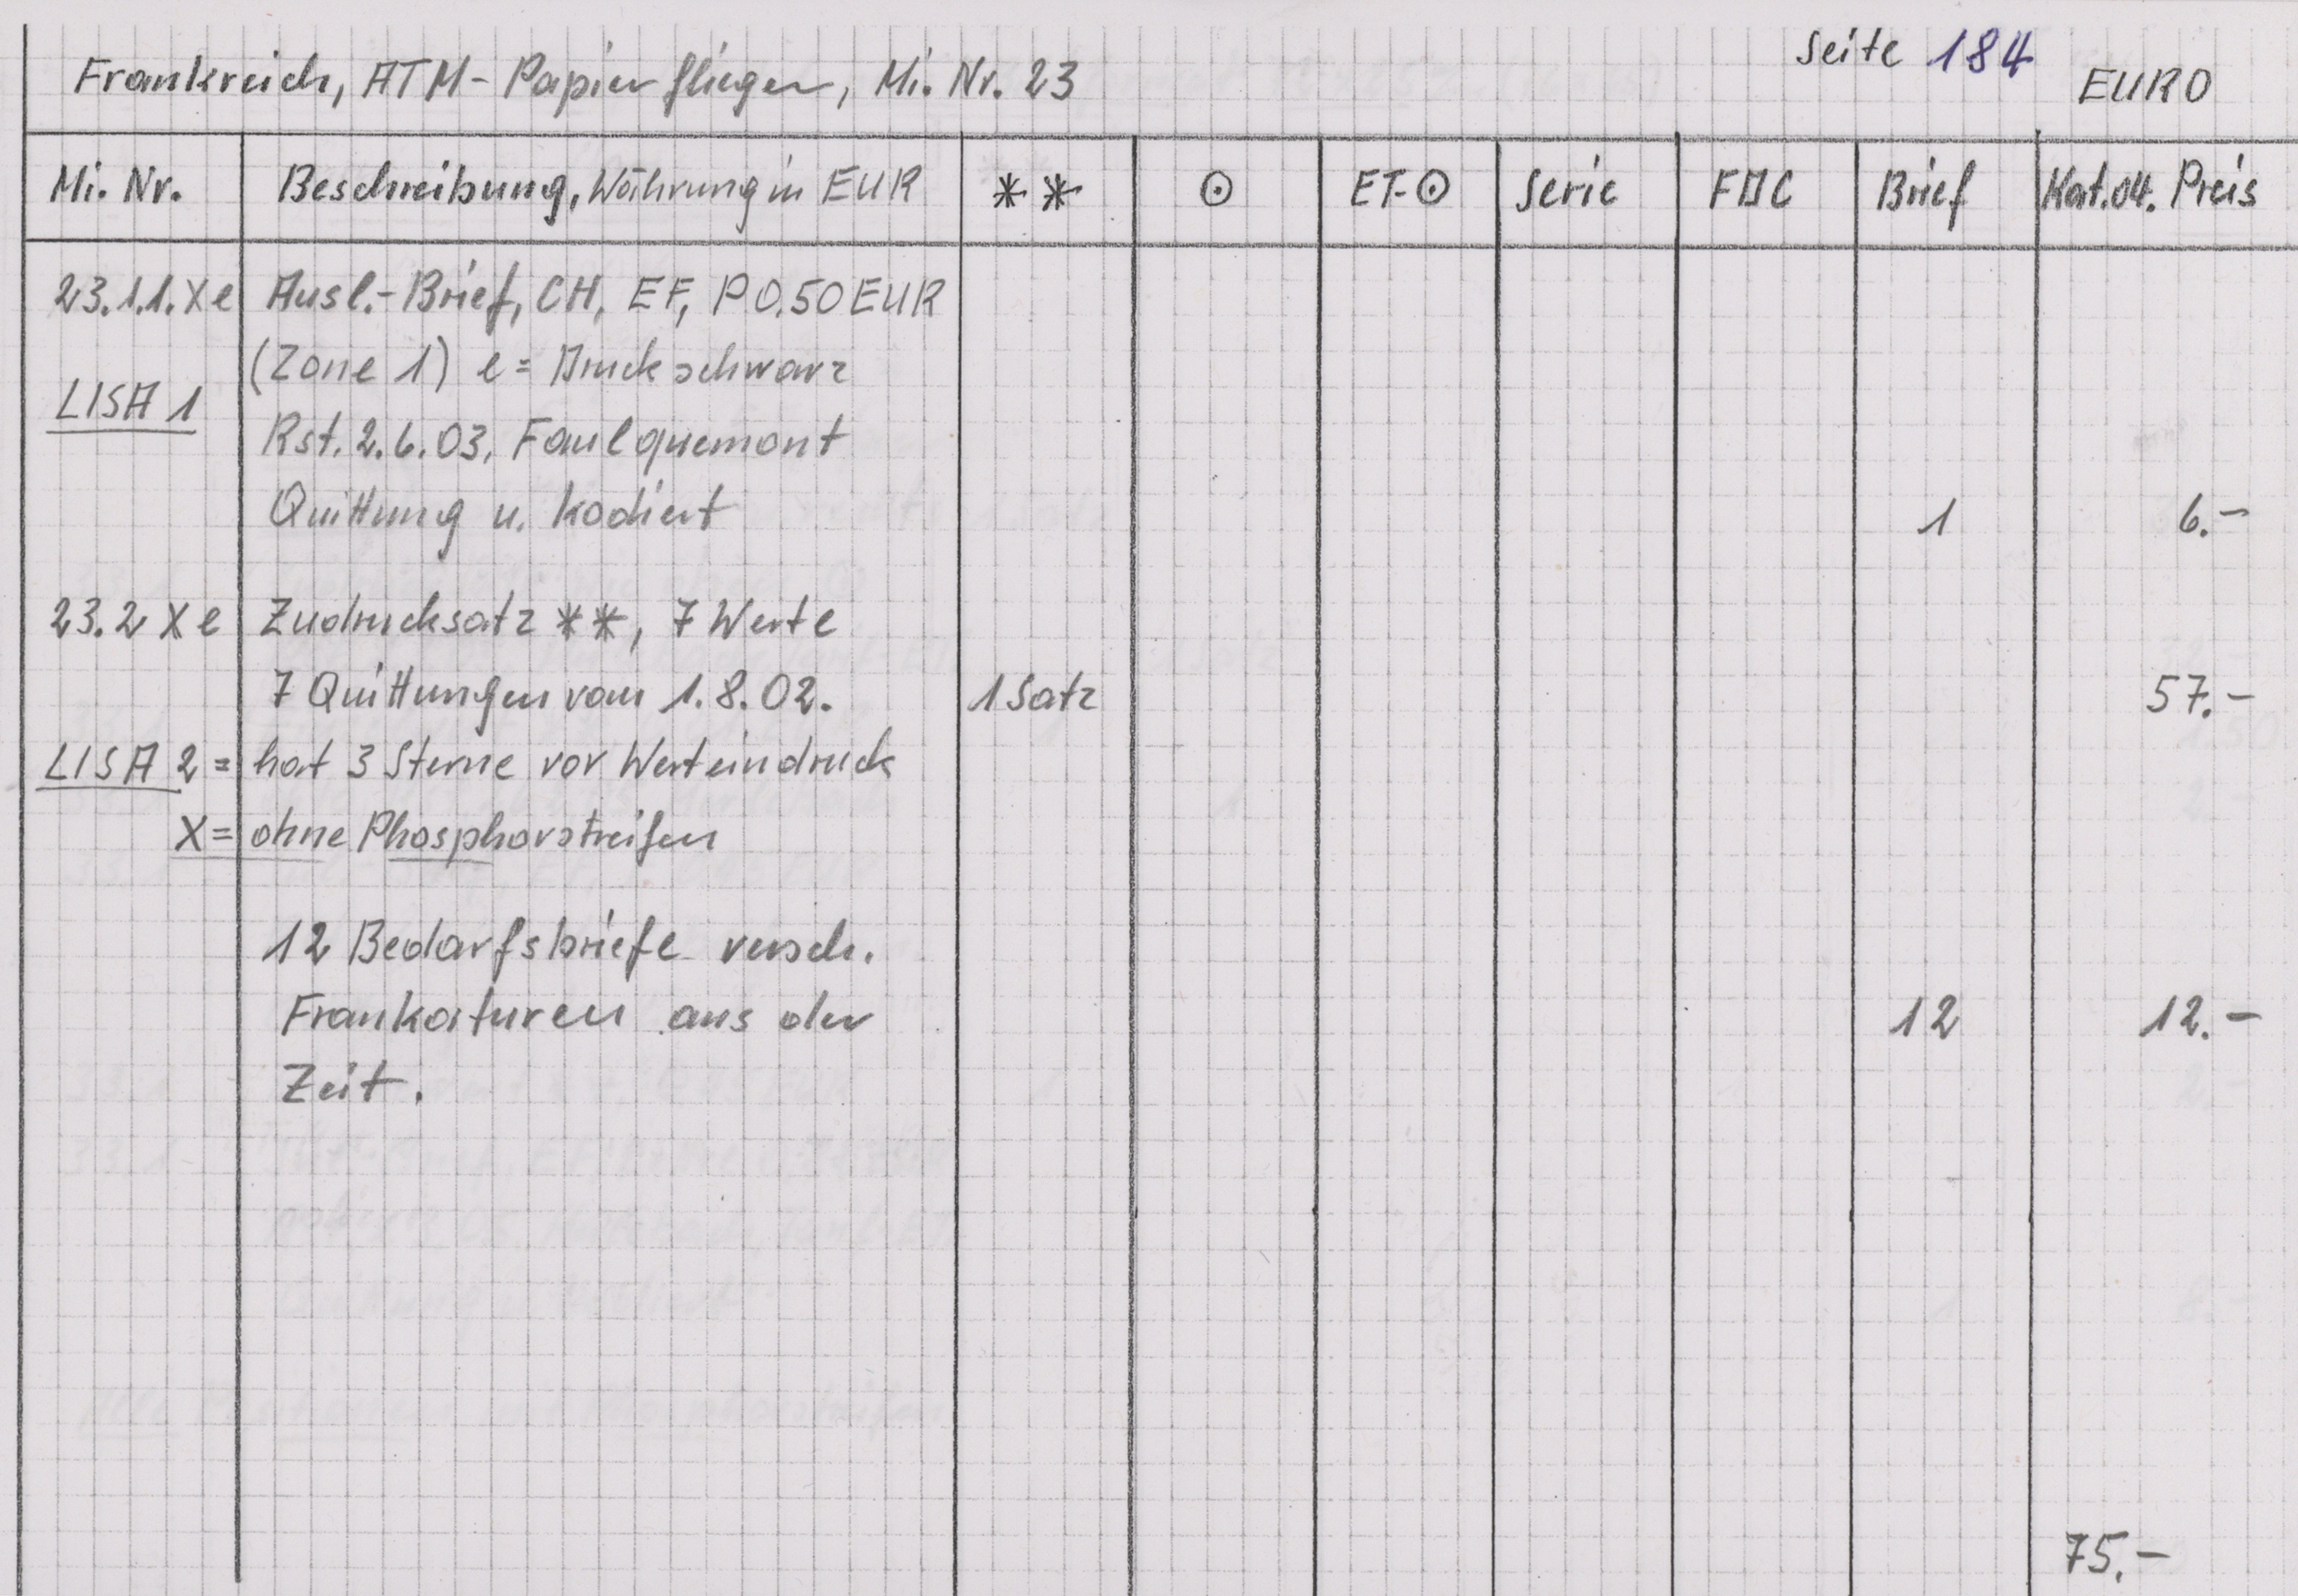 Seite 184
Frankreich, ATM-Papierflieger, Mi. Nr. 23 EURO
Mi. Nr. Beschreibung, Währung in EUR ** ⊙ ET-⊙ Serie FDC Brief Kat.04. Preis
23.1.1.X e Ausl.-Brief, CH, EF, P 0.50 EUR
(Zone 1) e = Druck schwarz
LISA 1
Rst. 2.6.03, Faulquemont
Quittung u. kodiert 1 6.-
23.2 X e Zudrucksatz **, 7 Werte
7 Quittungen vom 1.8.02. 1 Satz 57.-
LISA 2 = hat 3 Sterne vor Werteindruck
X = ohne Phosphorstreifen
12 Bedarfsbriefe versch.
Frankaturen aus der 12 12.-
Zeit.
75.-